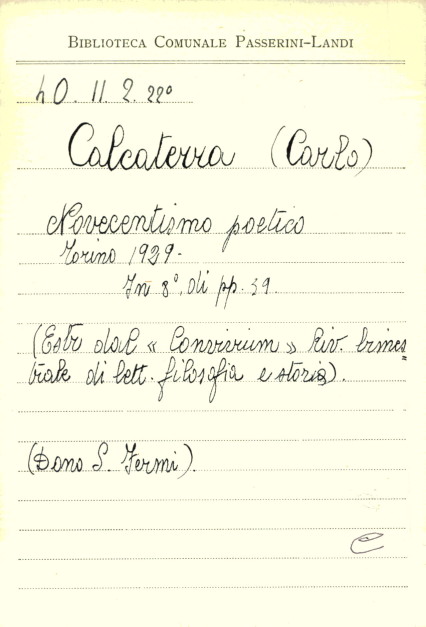 BIBLIOTECA COMUNALE PASSERINI-LANDI
40. 11. 2. 22º
Calcaterra (Carlo)
Novecentismo poetico
Torino 1929.
In 8º, di pp. 39.
(Estr dal « Convivium » Riv. bimes=
trale di lett. filosofia e storia).
(Dono S. Fermi).